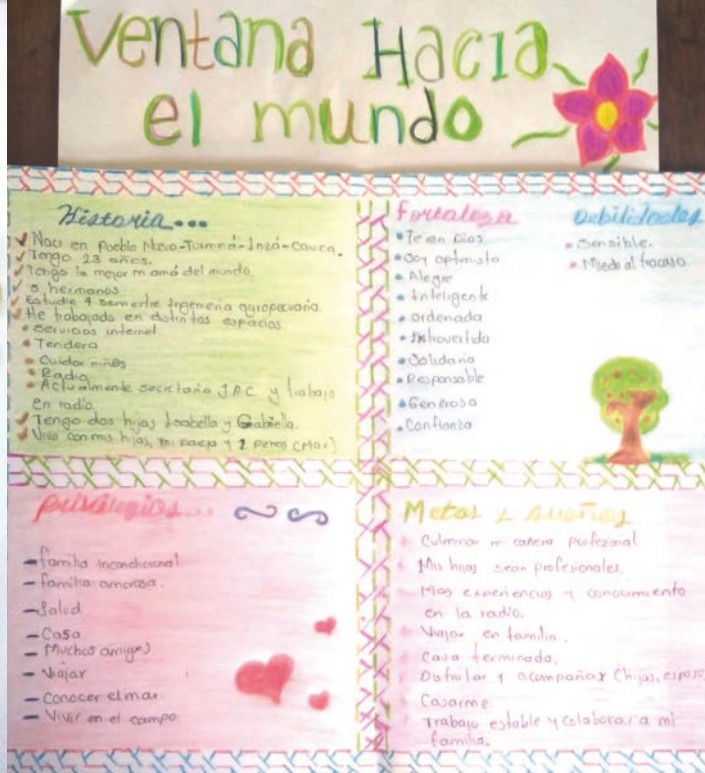 Ventana Hacia
el mundo
Historia...
Naci en Pueblo Nuevo-Tumbichucue-Inzá-Cauca.
Tengo 23 años.
Tengo la mejor mamá del mundo.
5 hermanos
Estudie 4 semestre Ingenieria agropecuaria.
He trabajado en distintos espacios
Servicios internet
Tendera
Cuidar niños
Radio
Actualmente secretaria JAC y trabajo
en radio.
Tengo dos hijas Isabella y Gabriella.
Vivo con mis hijas, mi pareja y 2 perros (Max)
Fortaleza
Fe en Dios
Soy optimista
Alegre
Inteligente
ordenada
Introvertida
Solidaria
Responsable
Generosa
Confianza
Debilidades
Sensible.
Miedo al fracaso.
Privilegios...
- familia incondicional
- familia amorosa.
- Salud
- Casa
- Muchos amig@s
- Viajar
- Conocer el mar.
- Vivir en el campo
Metas y sueños
Culminar mi carrera profesional
Mis hijas sean profesionales.
Mas experiencias y conocimiento
en la radio.
Viajar en familia.
Casa terminada.
Disfrutar y acompañar (hijas, esposo)
Casarme.
Trabajo estable y colaborar a mi
familia.